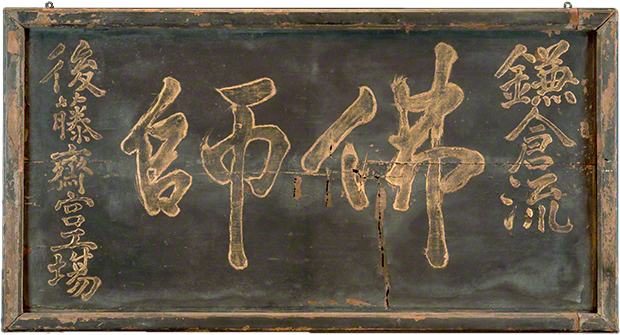 鎌倉流
佛師
後藤齋宮工場